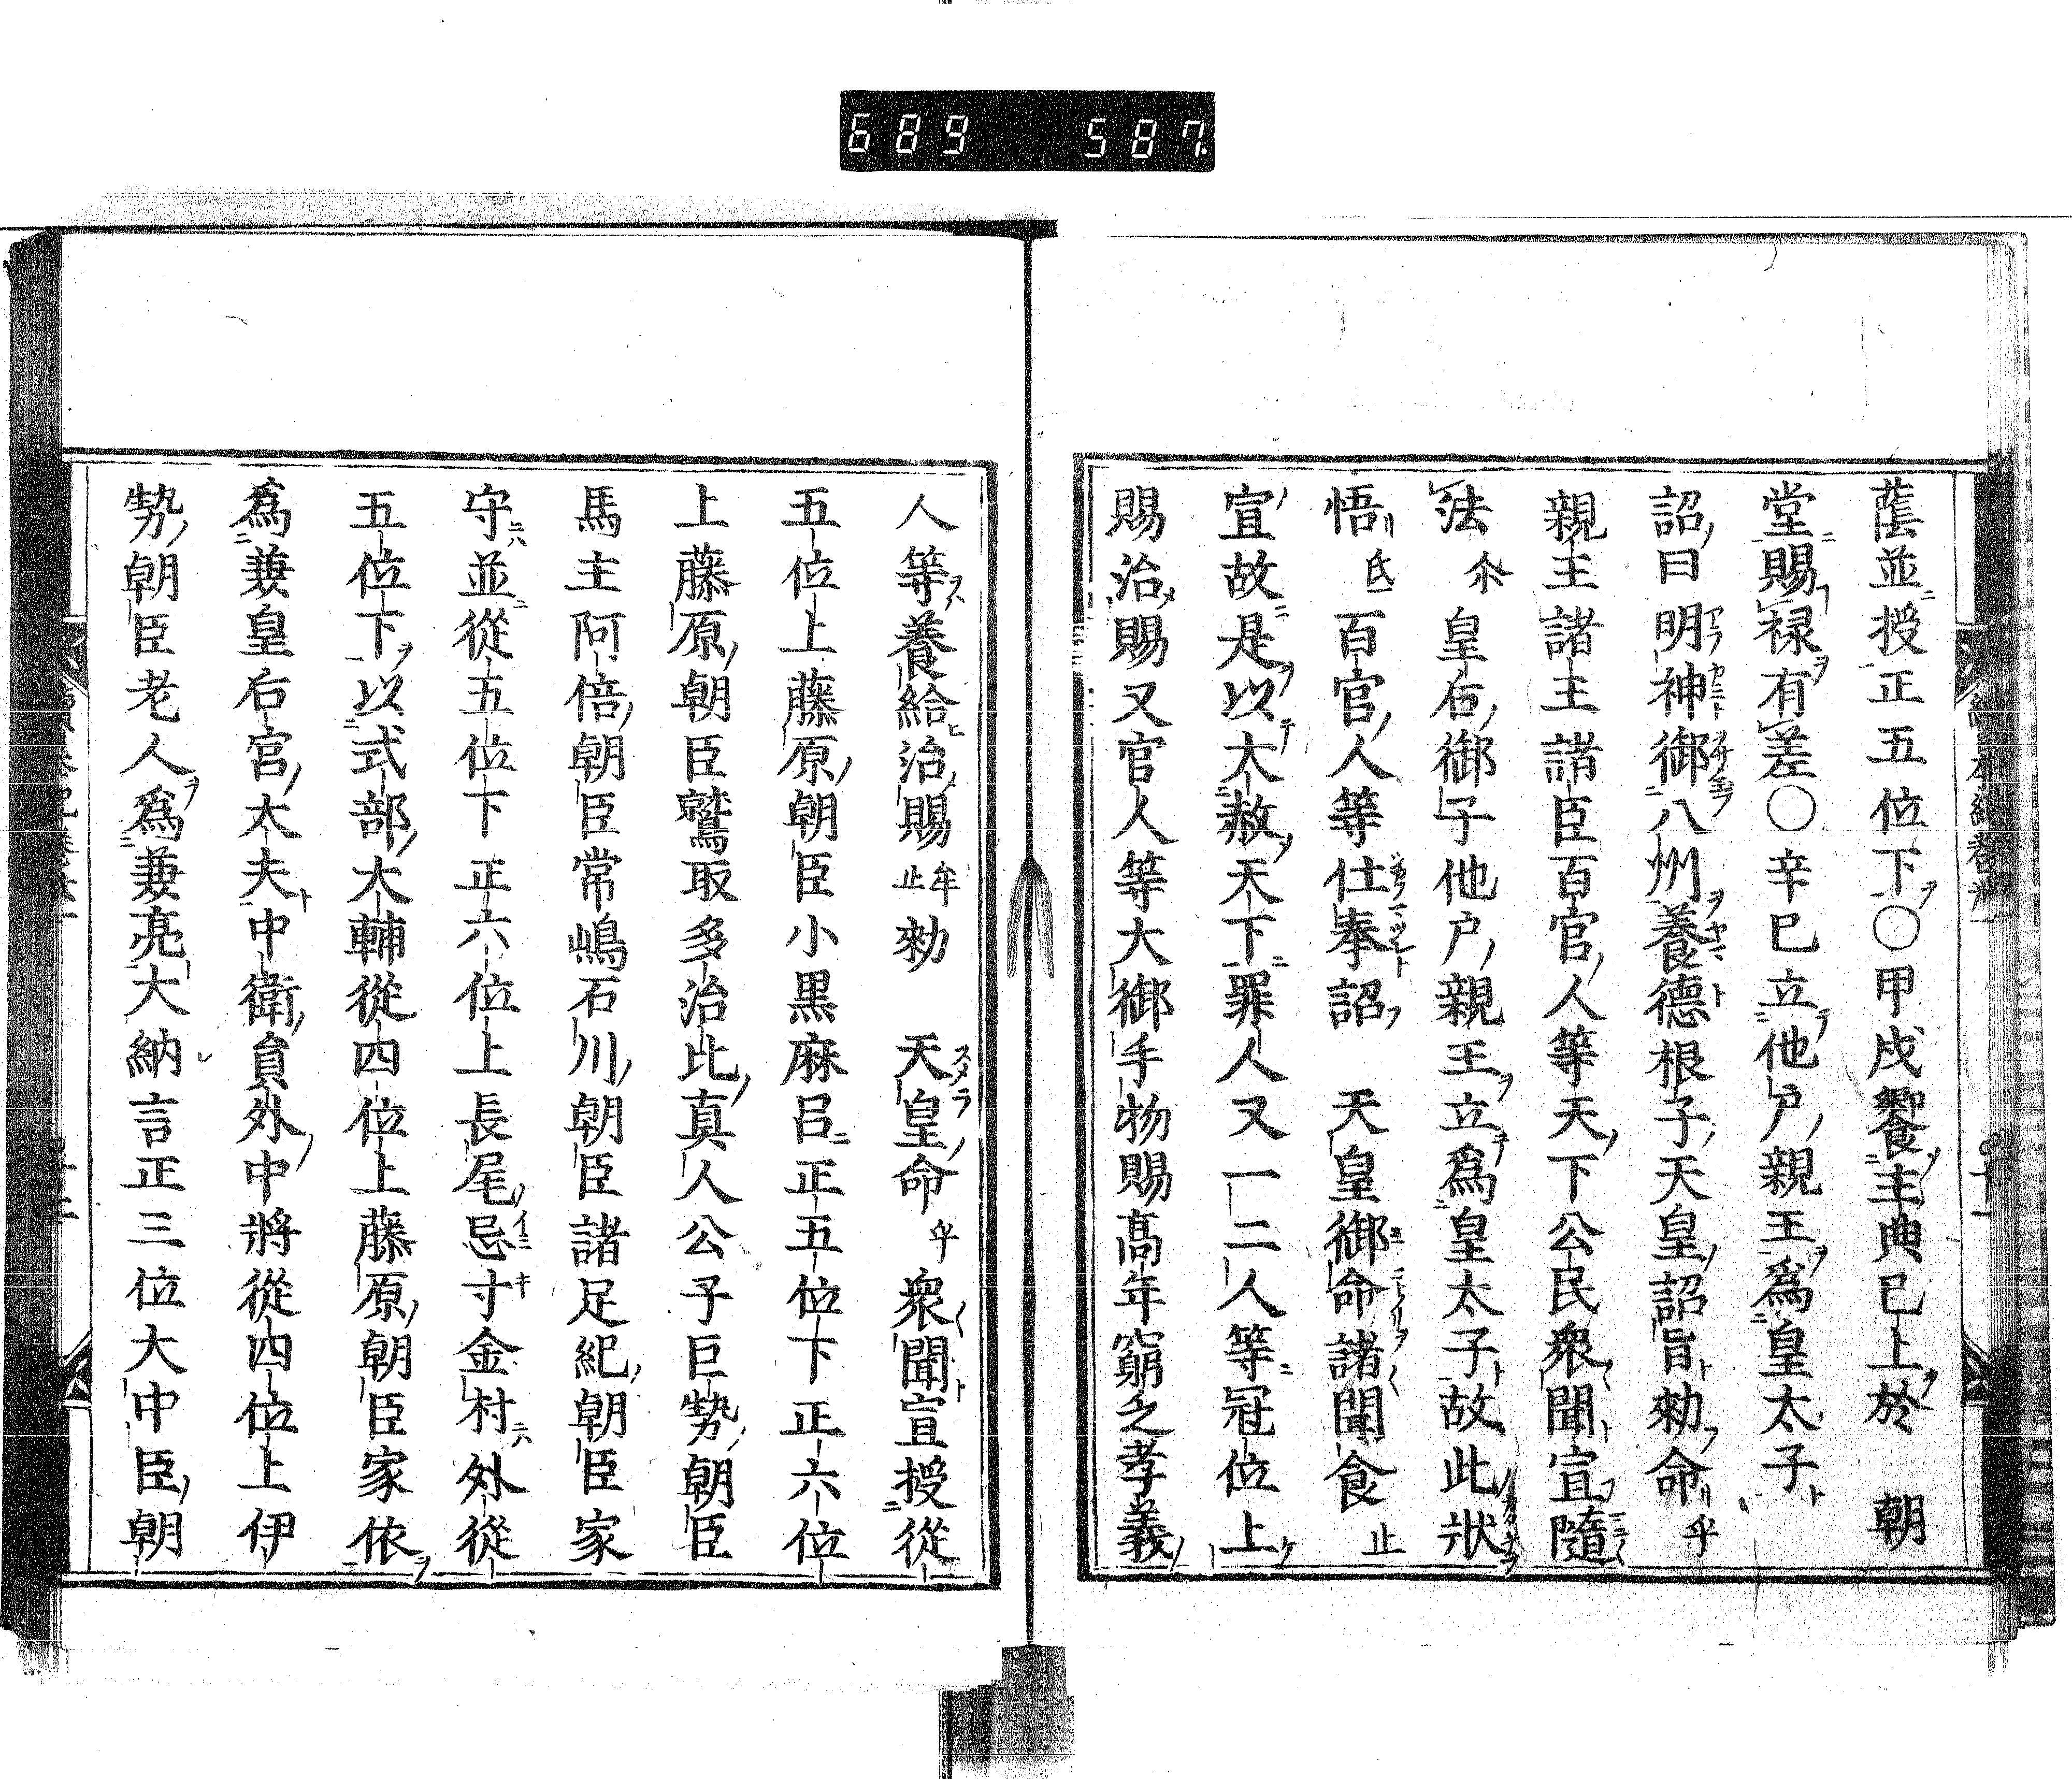 689 587
蔭並授正五位下○甲戌饗主典已上於 朝
堂賜禄有差○辛巳立他戸親王爲皇太子
詔曰明神御八州養德根子天皇詔旨勅命乎
親王諸王諸臣百官人等天下公民衆聞宣隨
法尒皇后御子他戸親王立爲皇太子故此狀
悟氐百官人等仕奉詔 天皇御命諸聞食止
宣故是以大赦天下罪人又一二人等冠位上
賜治賜又官人等大御手物賜高年窮乏孝義
人等養給治賜牟止勅 天皇命乎衆聞宣授從
五位上藤原朝臣小黒麻呂正五位下正六位
上藤原朝臣鷲取多治比真人公子巨勢朝臣
馬主阿倍朝臣常嶋石川朝臣諸足紀朝臣家
守並從五位下正六位上長尾忌寸金村外從
五位下以式部大輔從四位上藤原朝臣家依
爲兼皇后宮大夫中衛員外中將從四位上伊
勢朝臣老人爲兼亮大納言正三位大中臣朝